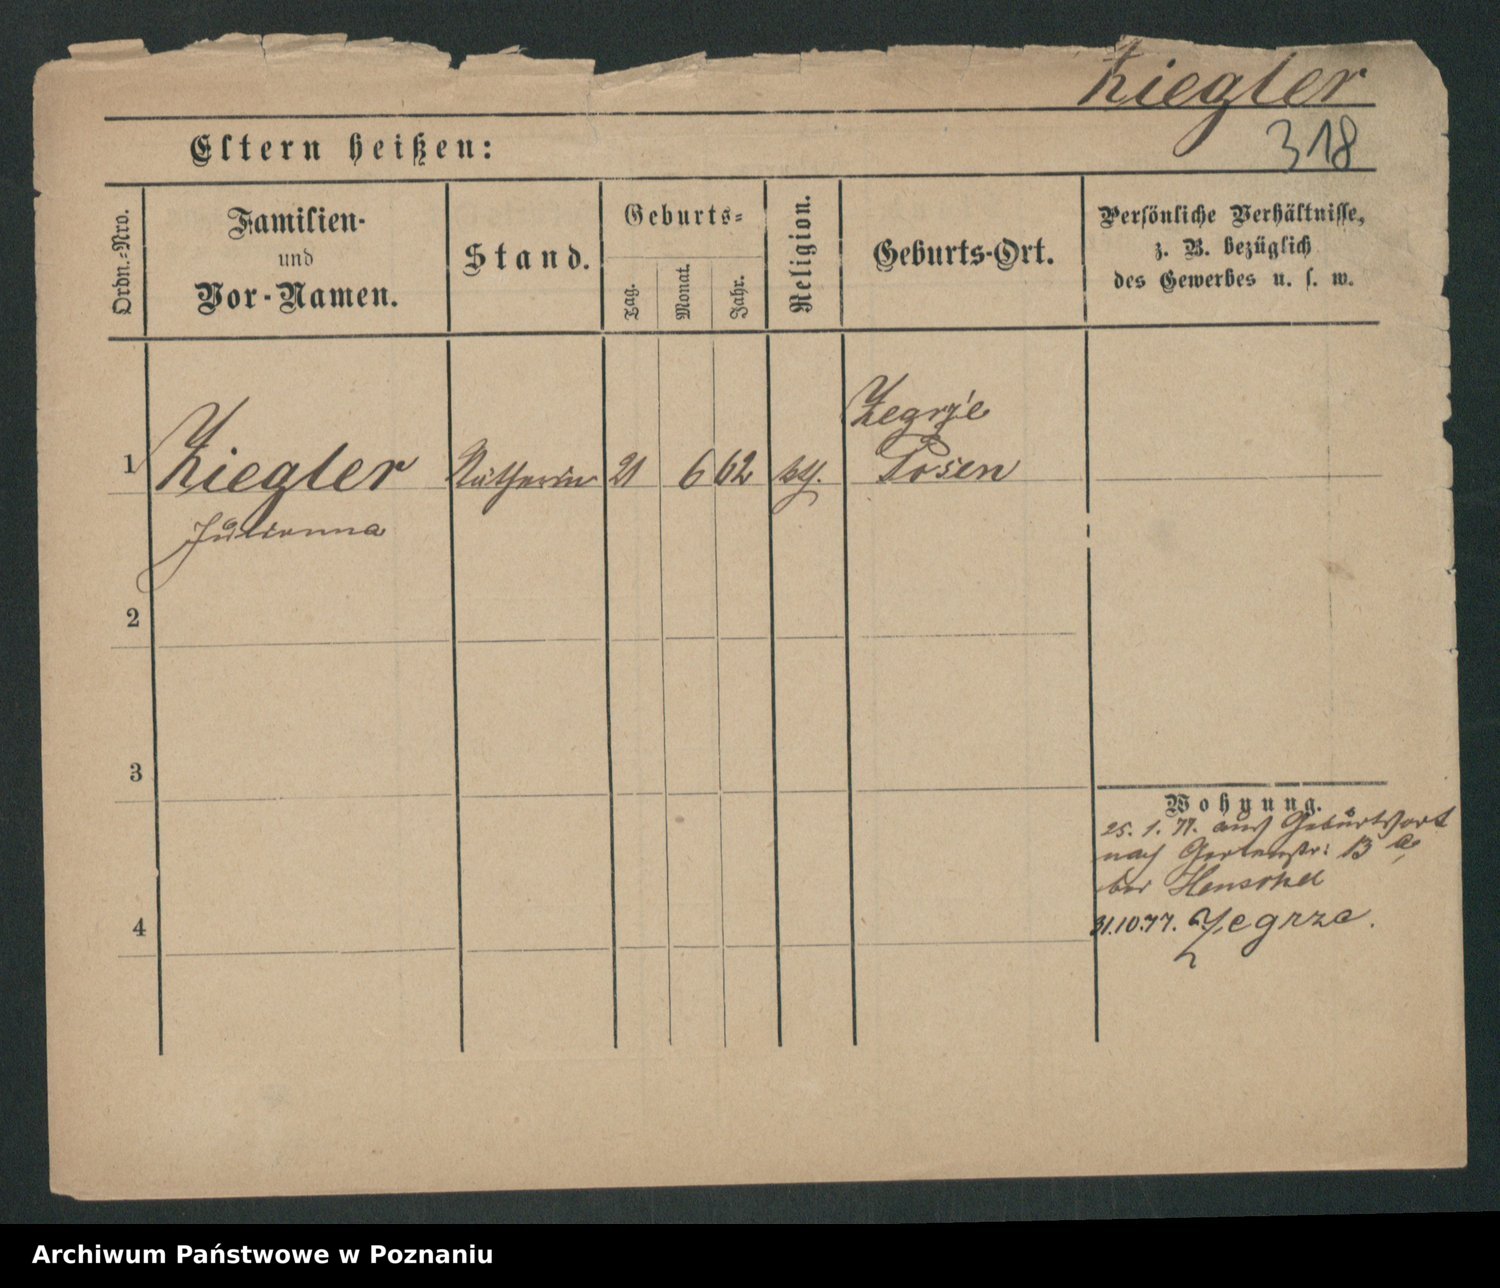 Ziegler
318
Eltern heißen:
Ordn.-Nro.
Familien-
und
Vor-Namen.
Stand.
Geburts-
Tag.
Monat.
Jahr.
Religion.
Geburts-Ort.
Persönliche Verhältnisse,
z. B. bezüglich
des Gewerbes u. s. w.
1
Ziegler
Julianna
Nätherin
21
6
62
kth.
Zegrze
Posen
2
3
4
Wohnung.
25. 1. 77. aus Geburtsort
nach Gartenstr: 13 a
bei Henschel
31.10.77. Zegrze.
Archiwum Państwowe w Poznaniu